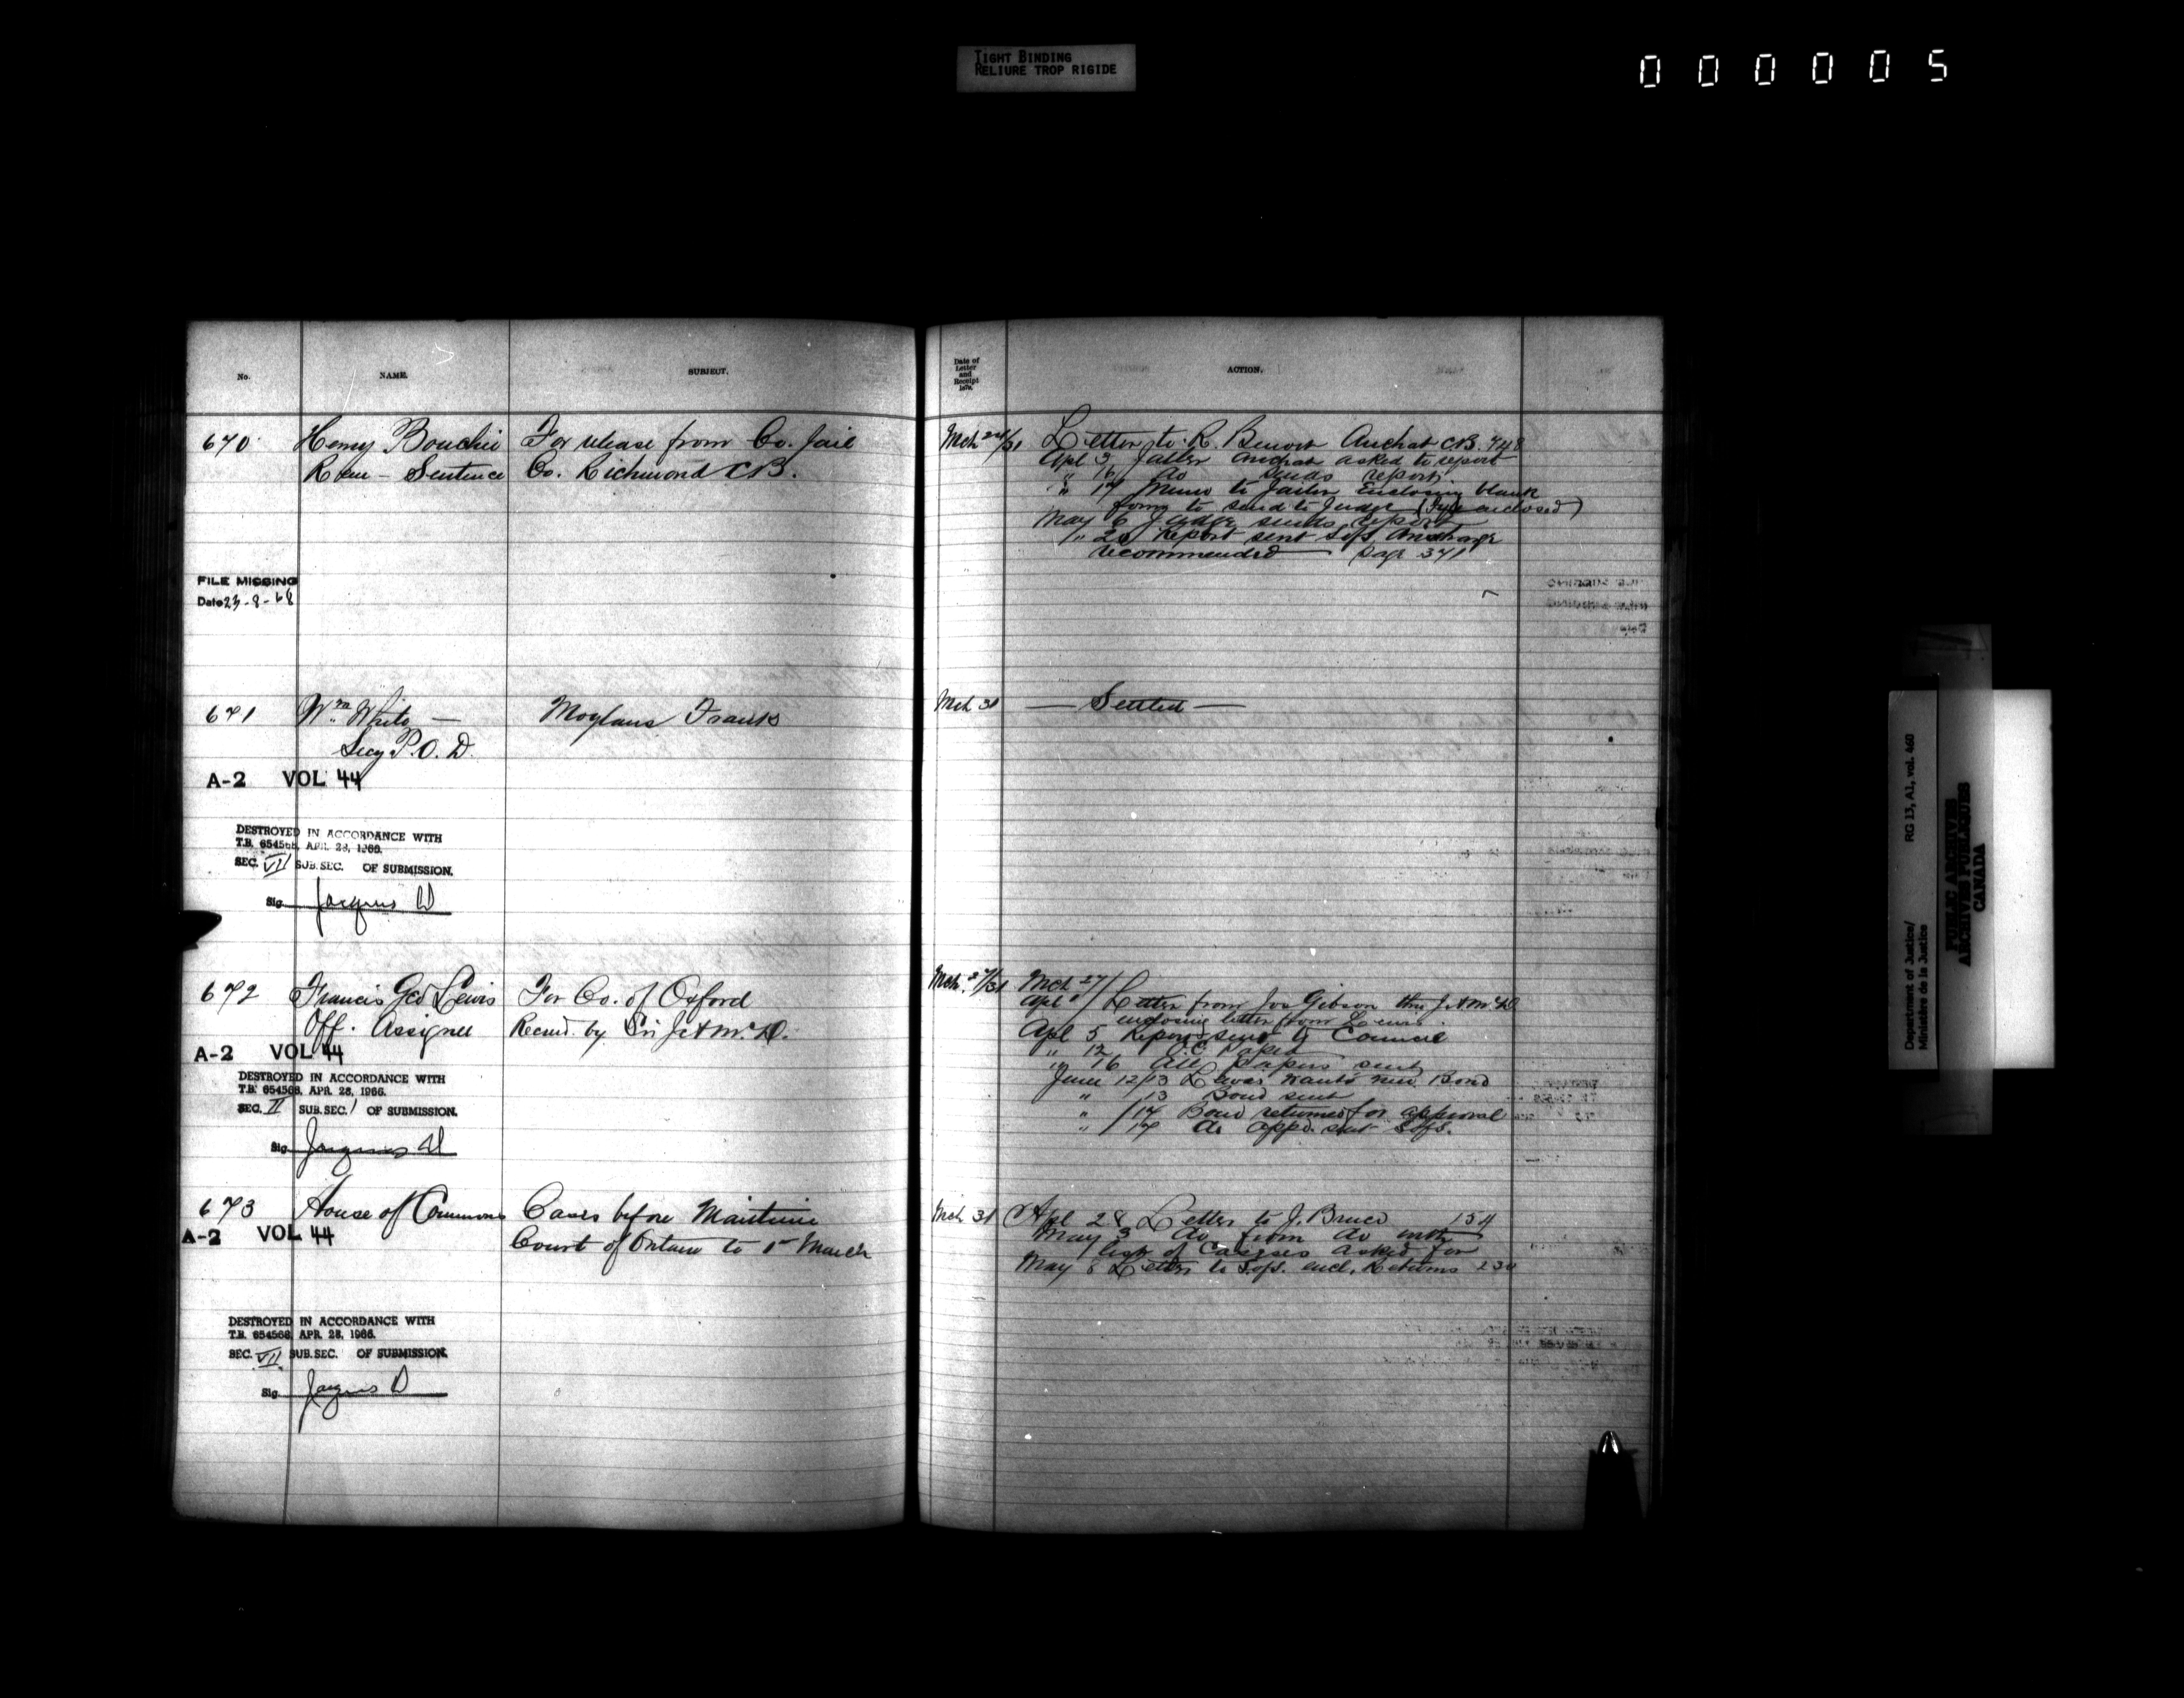 TIGHT BINDING
RELIURE TROP RIGIDE
000005
No.
NAME.
SUBJECT.
670
Henry Bouchie
For release from Co. Jail
Rem - Sentence
Co. Richmond C.B.
FILE MISSING
Date 23-8-68
671
Wm White —
Moylans Franks
Secy P.O.D.
A-2 VOL 44
DESTROYED IN ACCORDANCE WITH
T.B. 654568, APR. 28, 1966.
SEC. VII SUB. SEC. OF SUBMISSION.
Sig. Jacques D
672
Francis Geo Lewis
For Co. of Oxford
Off. Assignee
Recmd. by Sir J.A McD.
A-2 VOL 44
DESTROYED IN ACCORDANCE WITH
T.B. 654568, APR. 28, 1966.
SEC. II SUB. SEC. 1 OF SUBMISSION.
Sig. Jacques D
673
House of Commons
Cases before Maritime
A-2 VOL 44
Court of Ontario to 1st March
DESTROYED IN ACCORDANCE WITH
T.B. 654568, APR. 28, 1966.
SEC. VII SUB. SEC. OF SUBMISSION.
Sig. Jacques D
Date of
Letter
and
Receipt
1879.
ACTION.
Mch 24/31
Letter to R. Benoit Arichat C.B. 748
Apl 3 Jailer Arichat asked to report
" 16 do sends report
" 17 Memo to Jailer Enclosing blank
form to send to Judge ( enclosed)
May 6 Judge sends report
" 20 Report sent S of S discharge
recommended — page 341
Mch 31
— Settled —
Mch. 27/31
Mch 27/
Apl 1/ Letter from Jos Gibson thro J A McD
enclosing letter from Lewis
Apl 5 Report sent to Council
" 12 O.C. passed
" 16 All papers sent
June 12/13 Lewis wants new Bond
" 13 Bond sent
" /14 Bond returned for approval
" /17 do appd. sent S of S.
Mch 31
Apl 28 Letter to J. Bruce 154
May 3 do from do with
list of Cases asked for
May 8 Letter to S. of S. encl. Returns 230
Department of Justice/
Ministère de la Justice
RG 13, A1, vol. 460
PUBLIC ARCHIVES
ARCHIVES PUBLIQUES
CANADA